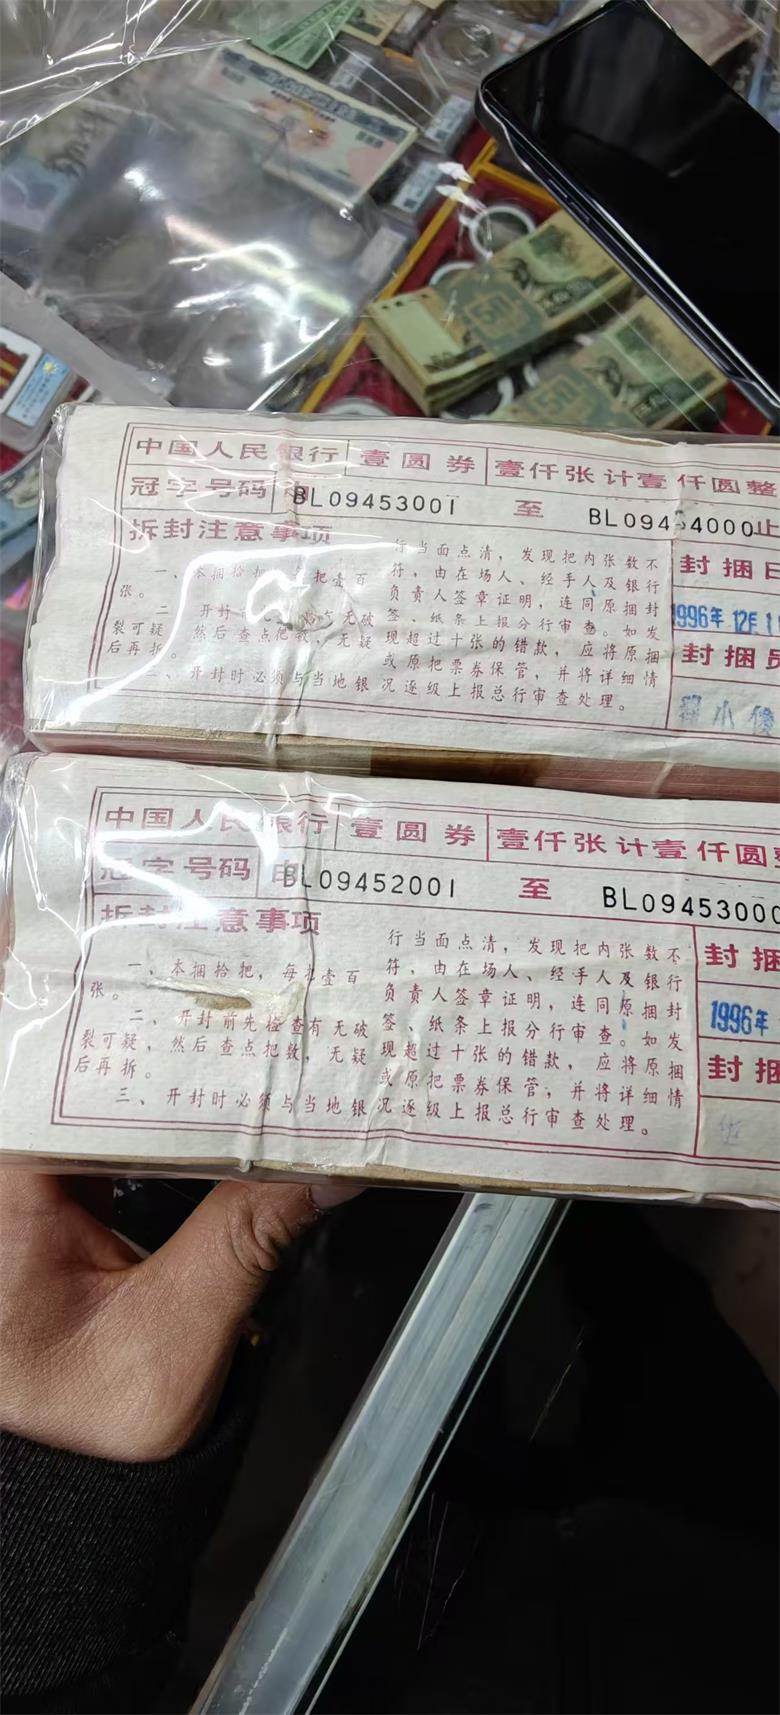 中国人民银行 壹圆券 壹仟张计壹仟圆整
冠字号码 BL09453001 至 BL09454000止
拆封注意事项
封捆日
1996年12月1
封捆员
一、本捆拾把，每把壹百
张。
二、开封 有无破
裂可疑，然后查点把数，无疑
后再拆。
开封时必须与当地银
行当面点清，发现把内张数不
符，由在场人、经手人及银行
负责人签章证明，连同原捆封
签、纸条上报分行审查。如发
现超过十张的错款，应将原捆
或原把票券保管，并将详细情
况逐级上报总行审查处理。
中国人民银行 壹圆券 壹仟张计壹仟圆整
冠字号码 BL09452001 至 BL09453000
拆封注意事项
封捆
1996年
封捆
一、本捆拾把，每把壹百
张。
二、开封前先检查有无破
裂可疑，然后查点把数，无疑
后再拆。
三、开封时必须与当地银
行当面点清，发现把内张数不
符，由在场人、经手人及银行
负责人签章证明，连同原捆封
签、纸条上报分行审查。如发
现超过十张的错款，应将原捆
或原把票券保管；并将详细情
况逐级上报总行审查处理。
50
50